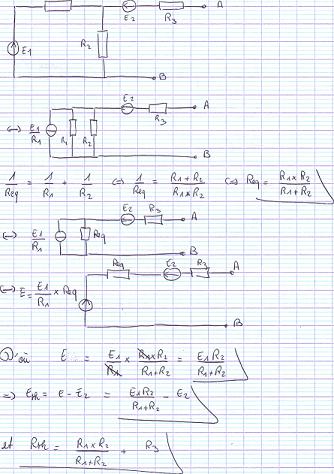 E2 R3 A
E1 R2
B
⇔ E1/R1 R1 R2 E2 R3 A
B
1/Req = 1/R1 + 1/R2 ⇔ 1/Req = (R1+R2)/(R1×R2) ⇔ Req = (R1×R2)/(R1+R2)
⇔ E1/R1 Req E2 R3 A
B
⇔ E = E1/R1 × Req Req E2 R3 A
B
D'où E = E1/R1 × (R1×R2)/(R1+R2) = E1R2/(R1+R2)
⇒ Eth = e - E2 = E1R2/(R1+R2) - E2
et Rth = (R1×R2)/(R1+R2) + R3